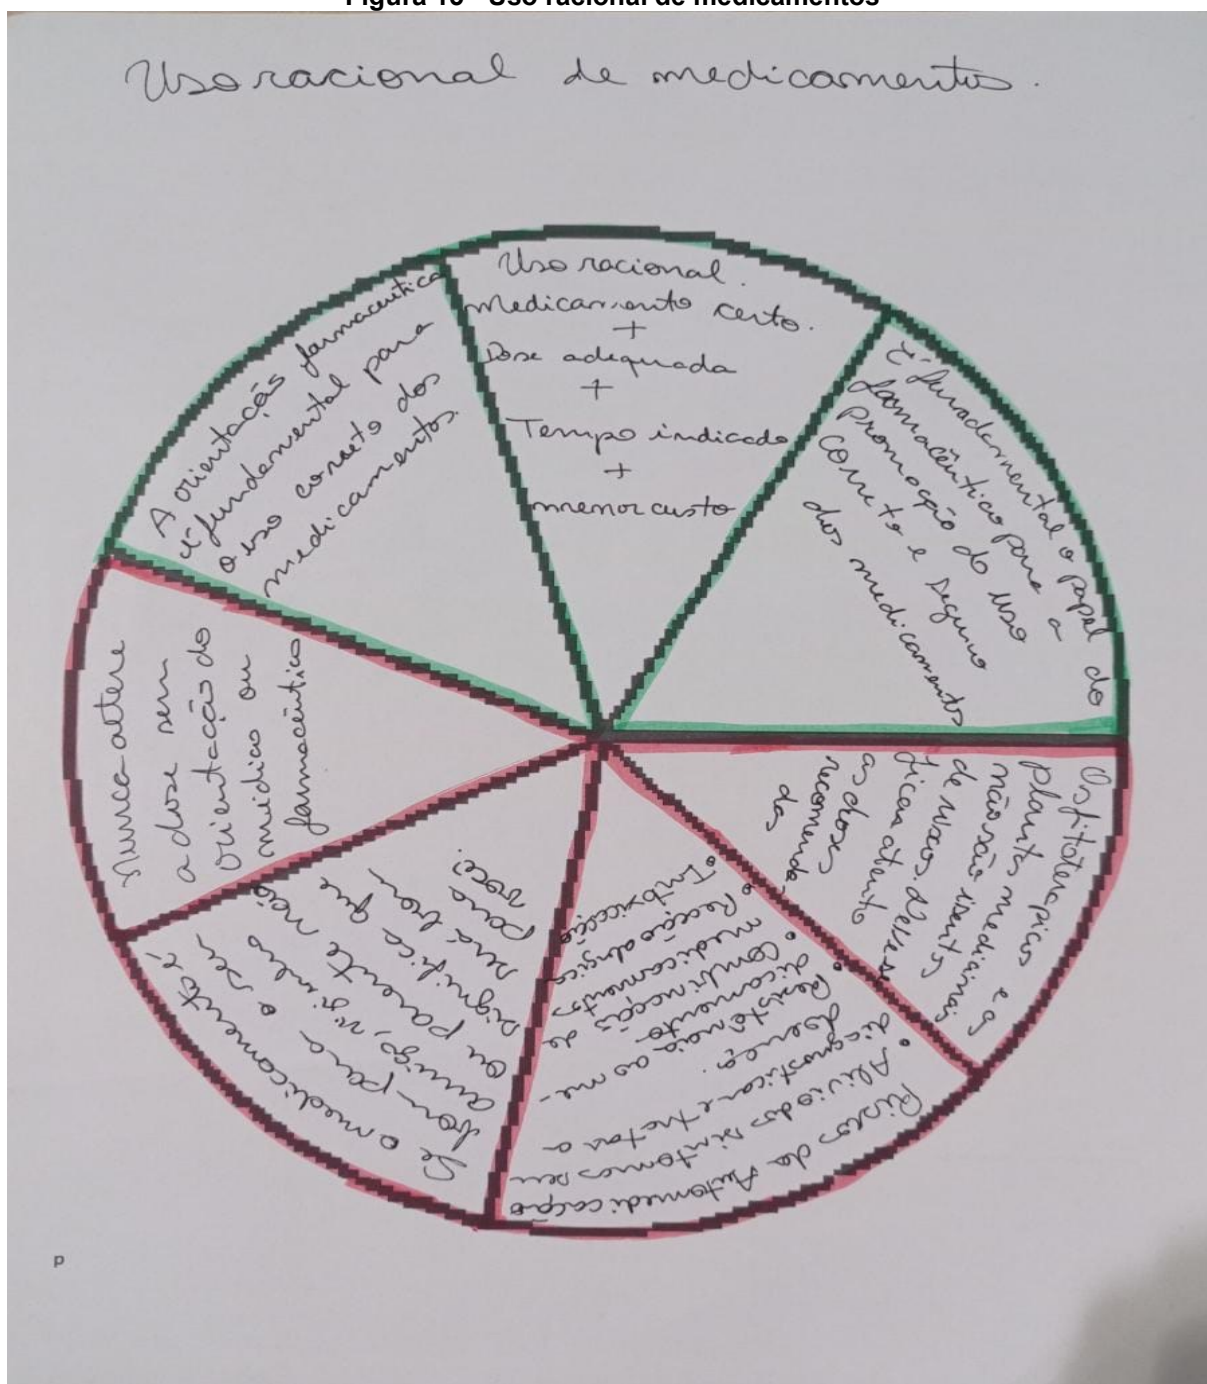 Figura 16 - Uso racional de medicamentos
Uso racional de medicamentos.
Uso racional.
Medicamento certo.
+
Dose adequada
+
Tempo indicado
+
menor custo
É fundamental o papel do
farmacêutico para a
promoção do uso
correto e seguro
dos medicamentos
Os fitoterápicos e as
plantas medicinais
não são isentos
de riscos. Deve-se
ficar atento
as doses
recomenda-
das
Riscos da Automedicação
• Alívio dos sintomas sem
diagnosticar e tratar a
doença.
• Resistência ao me-
dicamento
• Combinação de
medicamentos
• Reação alérgica
• Intoxicação
Se o medicamento é
bom para o seu
amigo, vizinho
ou parente não
significa que
será bom
para
você.
Nunca altere
a dose sem
orientação do
médico ou
farmacêutico
A orientação farmacêutica
é fundamental para
o uso correto dos
medicamentos.
p